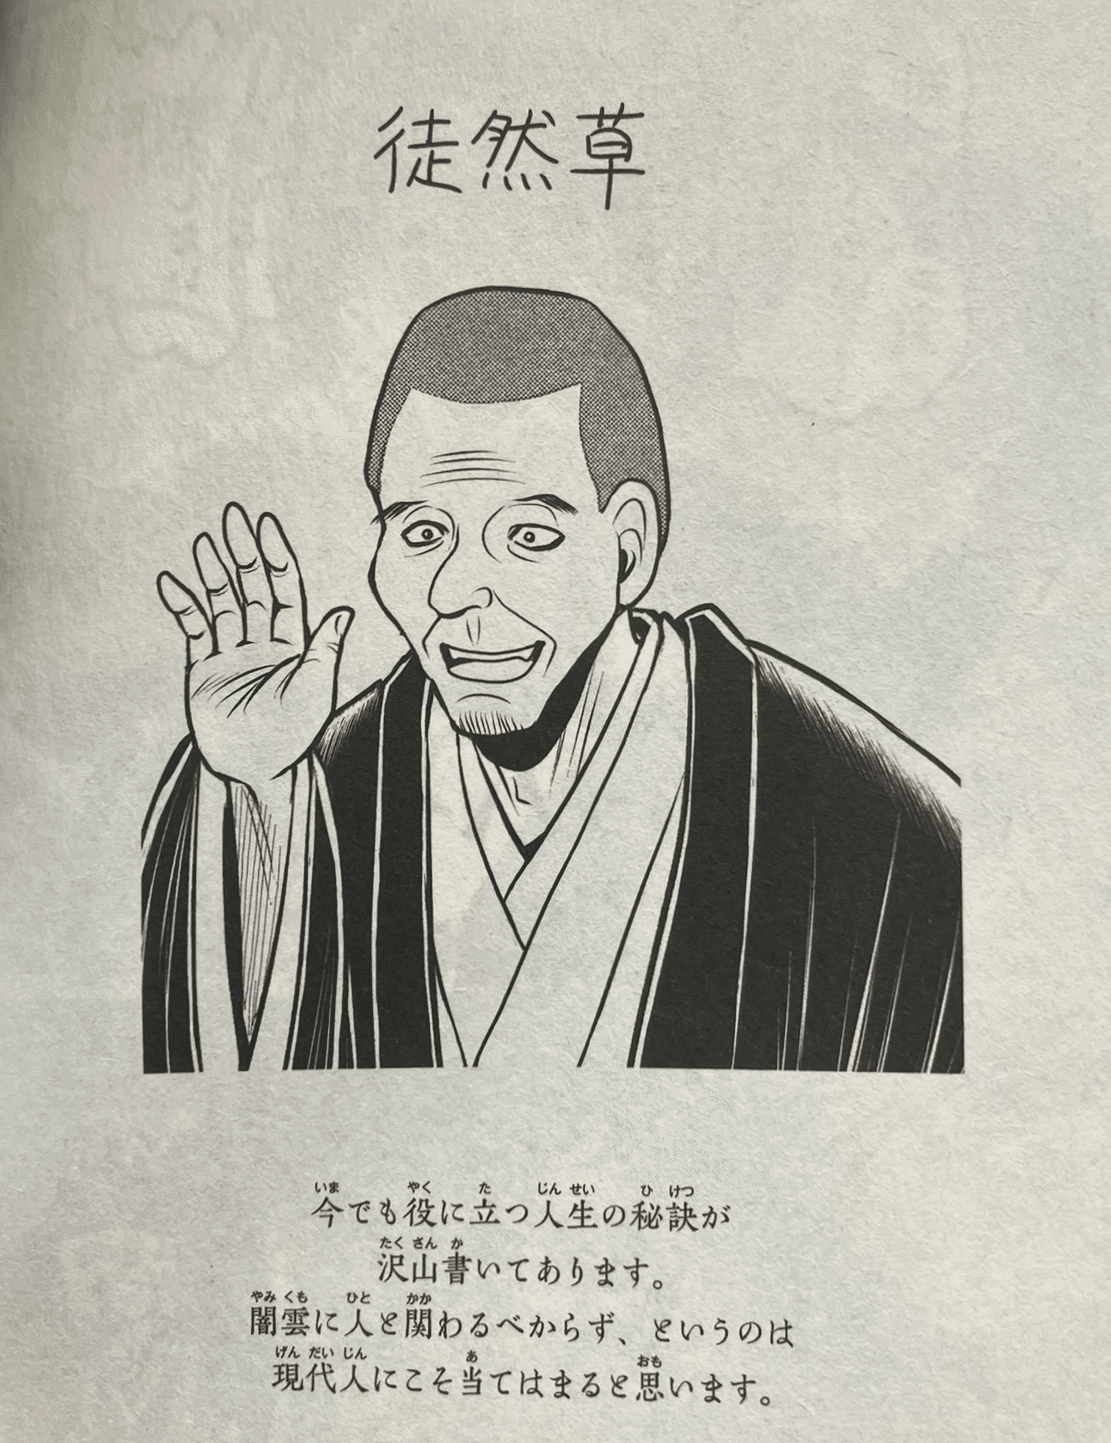 徒然草
今でも役に立つ人生の秘訣が
沢山書いてあります。
闇雲に人と関わるべからず、というのは
現代人にこそ当てはまると思います。